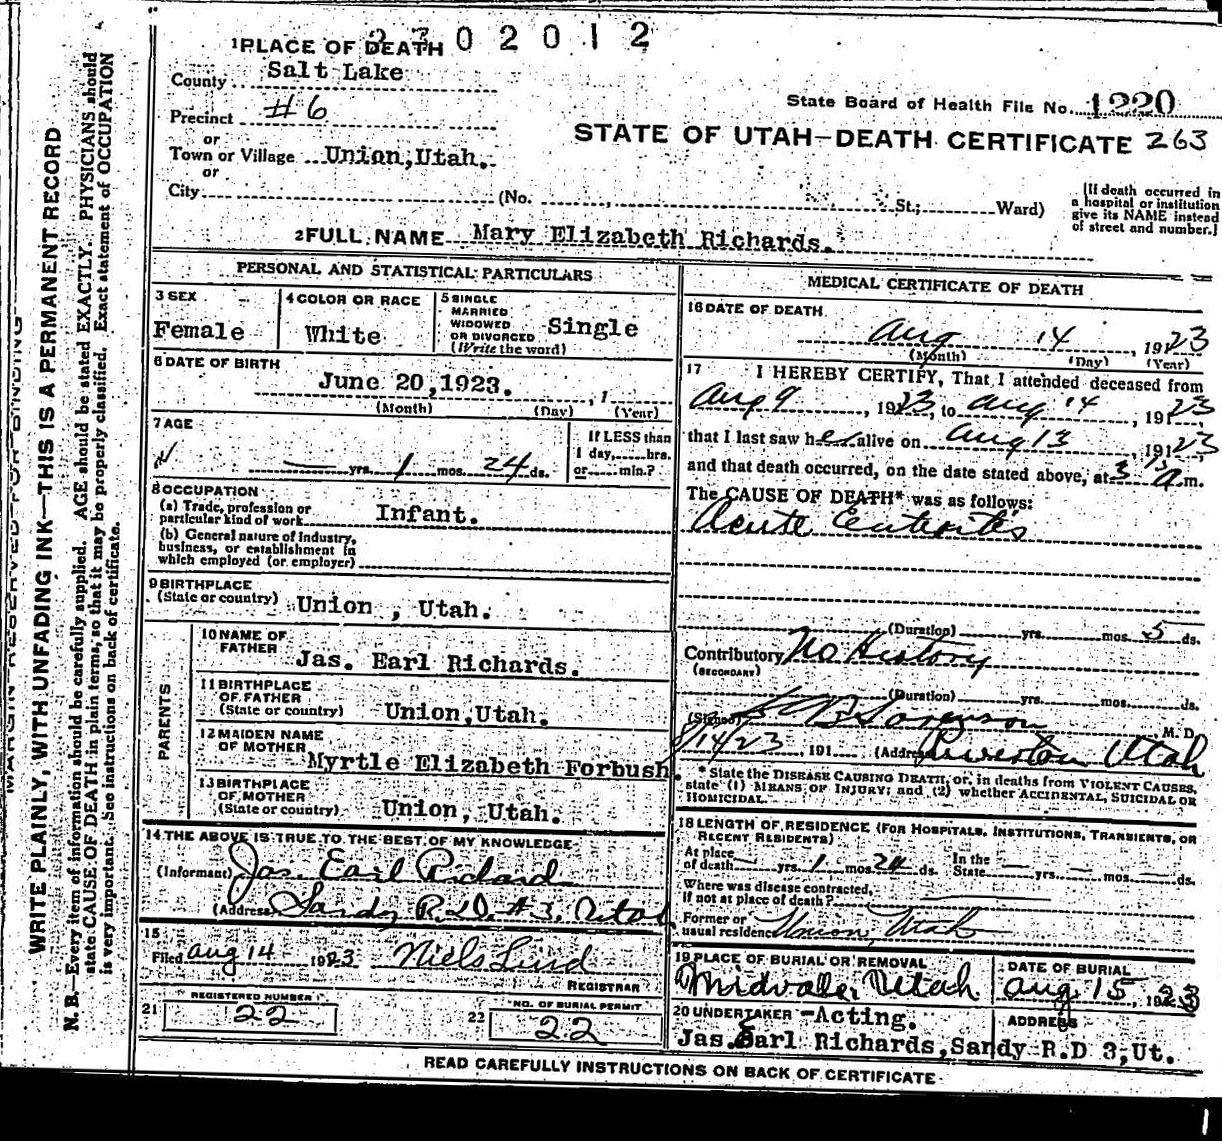 2302012
1 PLACE OF DEATH
County Salt Lake
Precinct #6
or
Town or Village Union, Utah.
or
City (No. , St.; Ward)
State Board of Health File No. 1220
STATE OF UTAH—DEATH CERTIFICATE 263
(If death occurred in
a hospital or institution
give its NAME instead
of street and number.)
2 FULL NAME Mary Elizabeth Richards.
PERSONAL AND STATISTICAL PARTICULARS
3 SEX
Female
4 COLOR OR RACE
White
5 SINGLE
MARRIED
WIDOWED
OR DIVORCED
(Write the word)
Single
6 DATE OF BIRTH
June 20, 1923. , 1
(Month) (Day) (Year)
7 AGE
yrs. 1 mos. 24 ds.
If LESS than
1 day, hrs.
or min.?
8 OCCUPATION
(a) Trade, profession or
particular kind of work Infant.
(b) General nature of Industry,
business, or establishment in
which employed (or employer)
9 BIRTHPLACE
(State or country) Union, Utah.
PARENTS
10 NAME OF
FATHER
Jas. Earl Richards.
11 BIRTHPLACE
OF FATHER
(State or country) Union, Utah.
12 MAIDEN NAME
OF MOTHER
Myrtle Elizabeth Forbush.
13 BIRTHPLACE
OF MOTHER
(State or country) Union, Utah.
14 THE ABOVE IS TRUE TO THE BEST OF MY KNOWLEDGE
(Informant) Jas. Earl Richard
(Address) Sandy R.D. #3, Utah
15
Filed Aug 14 1923 Niels Lind
REGISTRAR
21 REGISTERED NUMBER
22
22 NO. OF BURIAL PERMIT
22
MEDICAL CERTIFICATE OF DEATH
16 DATE OF DEATH
Aug 14 , 1923
(Month) (Day) (Year)
17 I HEREBY CERTIFY, That I attended deceased from
Aug 9 , 1923, to Aug 14 , 1923,
that I last saw her alive on Aug 13 1923
and that death occurred, on the date stated above, at 3 15 a m.
The CAUSE OF DEATH* was as follows:
Acute Enteritis
(Duration) yrs. mos. 5 ds.
Contributory No History
(SECONDARY)
(Duration) yrs. mos. ds.
(Signed) Sorenson M. D.
8/14/23 , 191 (Address) Riverton Utah
* State the DISEASE CAUSING DEATH, or, in deaths from VIOLENT CAUSES,
state (1) MEANS OF INJURY; and (2) whether ACCIDENTAL, SUICIDAL OR
HOMICIDAL.
18 LENGTH OF RESIDENCE (FOR HOSPITALS, INSTITUTIONS, TRANSIENTS, OR
RECENT RESIDENTS)
At place
of death yrs. 1 mos. 24 ds.
In the
State yrs. mos. ds.
Where was disease contracted,
if not at place of death?
Former or
usual residence Union, Utah
19 PLACE OF BURIAL OR REMOVAL
Midvale, Utah
DATE OF BURIAL
Aug 15, 1923
20 UNDERTAKER -Acting.
ADDRESS
Jas. Earl Richards, Sandy R.D 3, Ut.
READ CAREFULLY INSTRUCTIONS ON BACK OF CERTIFICATE
MARGIN RESERVED FOR BINDING
WRITE PLAINLY, WITH UNFADING INK—THIS IS A PERMANENT RECORD
N. B.—Every item of information should be carefully supplied. AGE should be stated EXACTLY. PHYSICIANS should
state CAUSE OF DEATH in plain terms, so that it may be properly classified. Exact statement of OCCUPATION
is very important. See instructions on back of certificate.